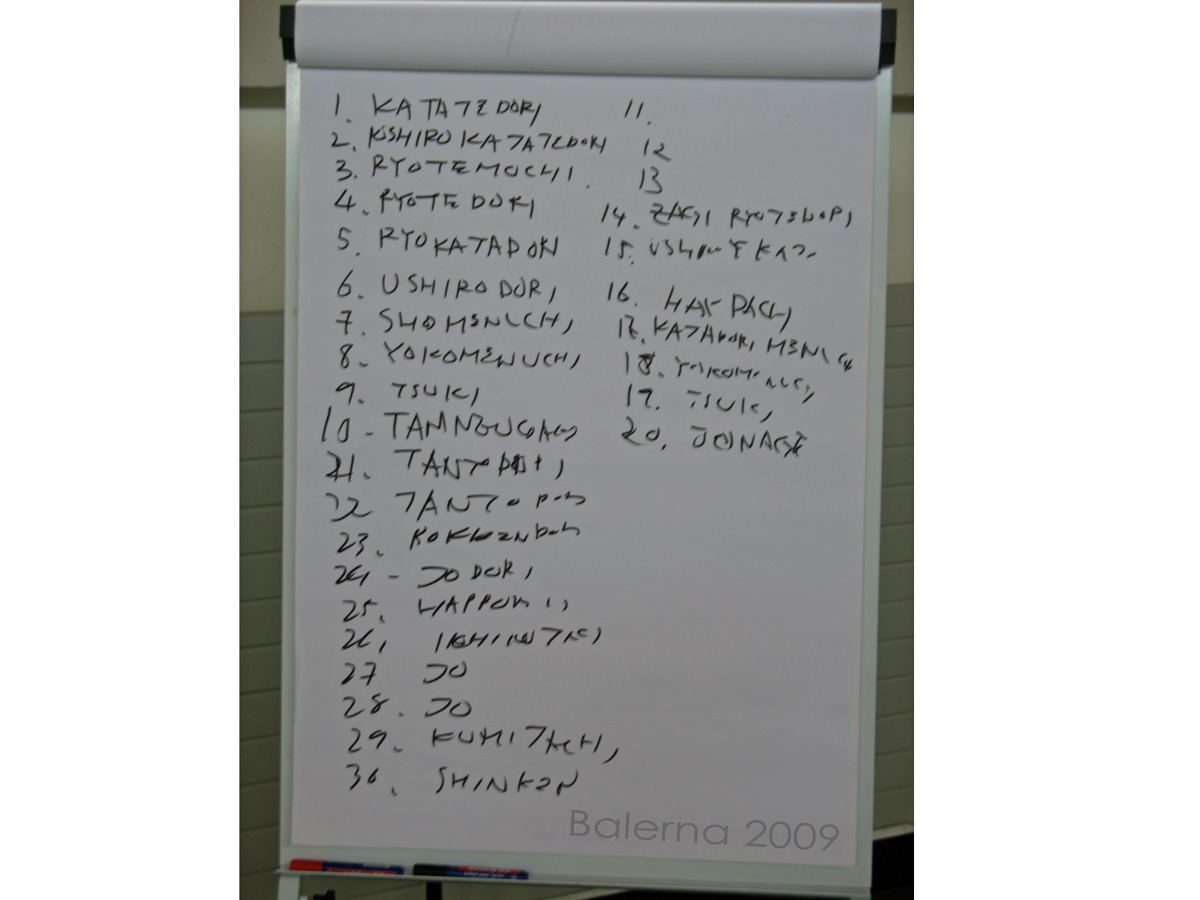 1. KATATEDORI
2. USHIRO KATATEDORI
3. RYOTEMOCHI.
4. RYOTEDORI
5. RYOKATADORI
6. USHIRODORI
7. SHOMENUCHI
8. YOKOMENUCHI
9. TSUKI
10-
21. TANTODORI
22 TANTODORI
23.
24- JODORI
25.
26,
27 JO
28. JO
29. KUMITACHI
30. SHINKEN
11.
12
13
14. RYOTEDORI
15.
16.
17. KATADORI MENUCHI
18. YOKOMENUCHI
19. TSUKI
20. JONAGE
Balerna 2009